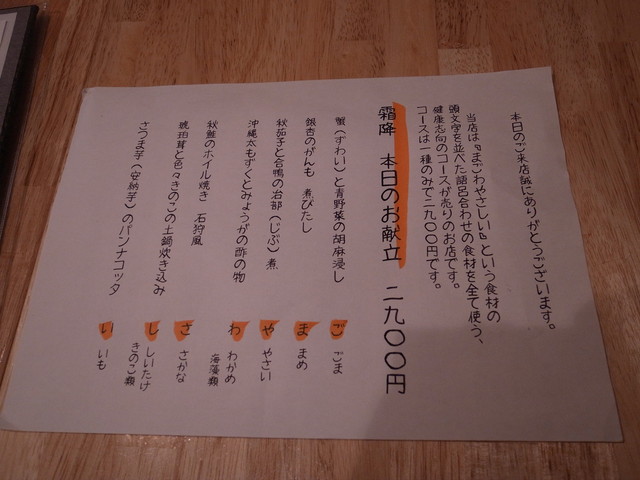 本日のご来店誠にありがとうございます。
当店は『まごわやさしい』という食材の
頭文字を並べた語呂合わせの食材を全て使う、
健康志向のコースが売りのお店です。
コースは一種のみで二九〇〇円です。
霜降 本日のお献立 二九〇〇円
蟹(ずわい)と青野菜の胡麻浸し ご ごま
銀杏のがんも 煮びたし ま まめ
秋茄子と合鴨の治部(じぶ)煮 や やさい
沖縄太もずくとみょうがの酢の物 わ わかめ 海藻類
秋鮭のホイル焼き 石狩風 さ さかな
琥珀茸と色々きのこの土鍋炊き込み し しいたけ きのこ類
さつま芋(安納芋)のパンナコッタ い いも